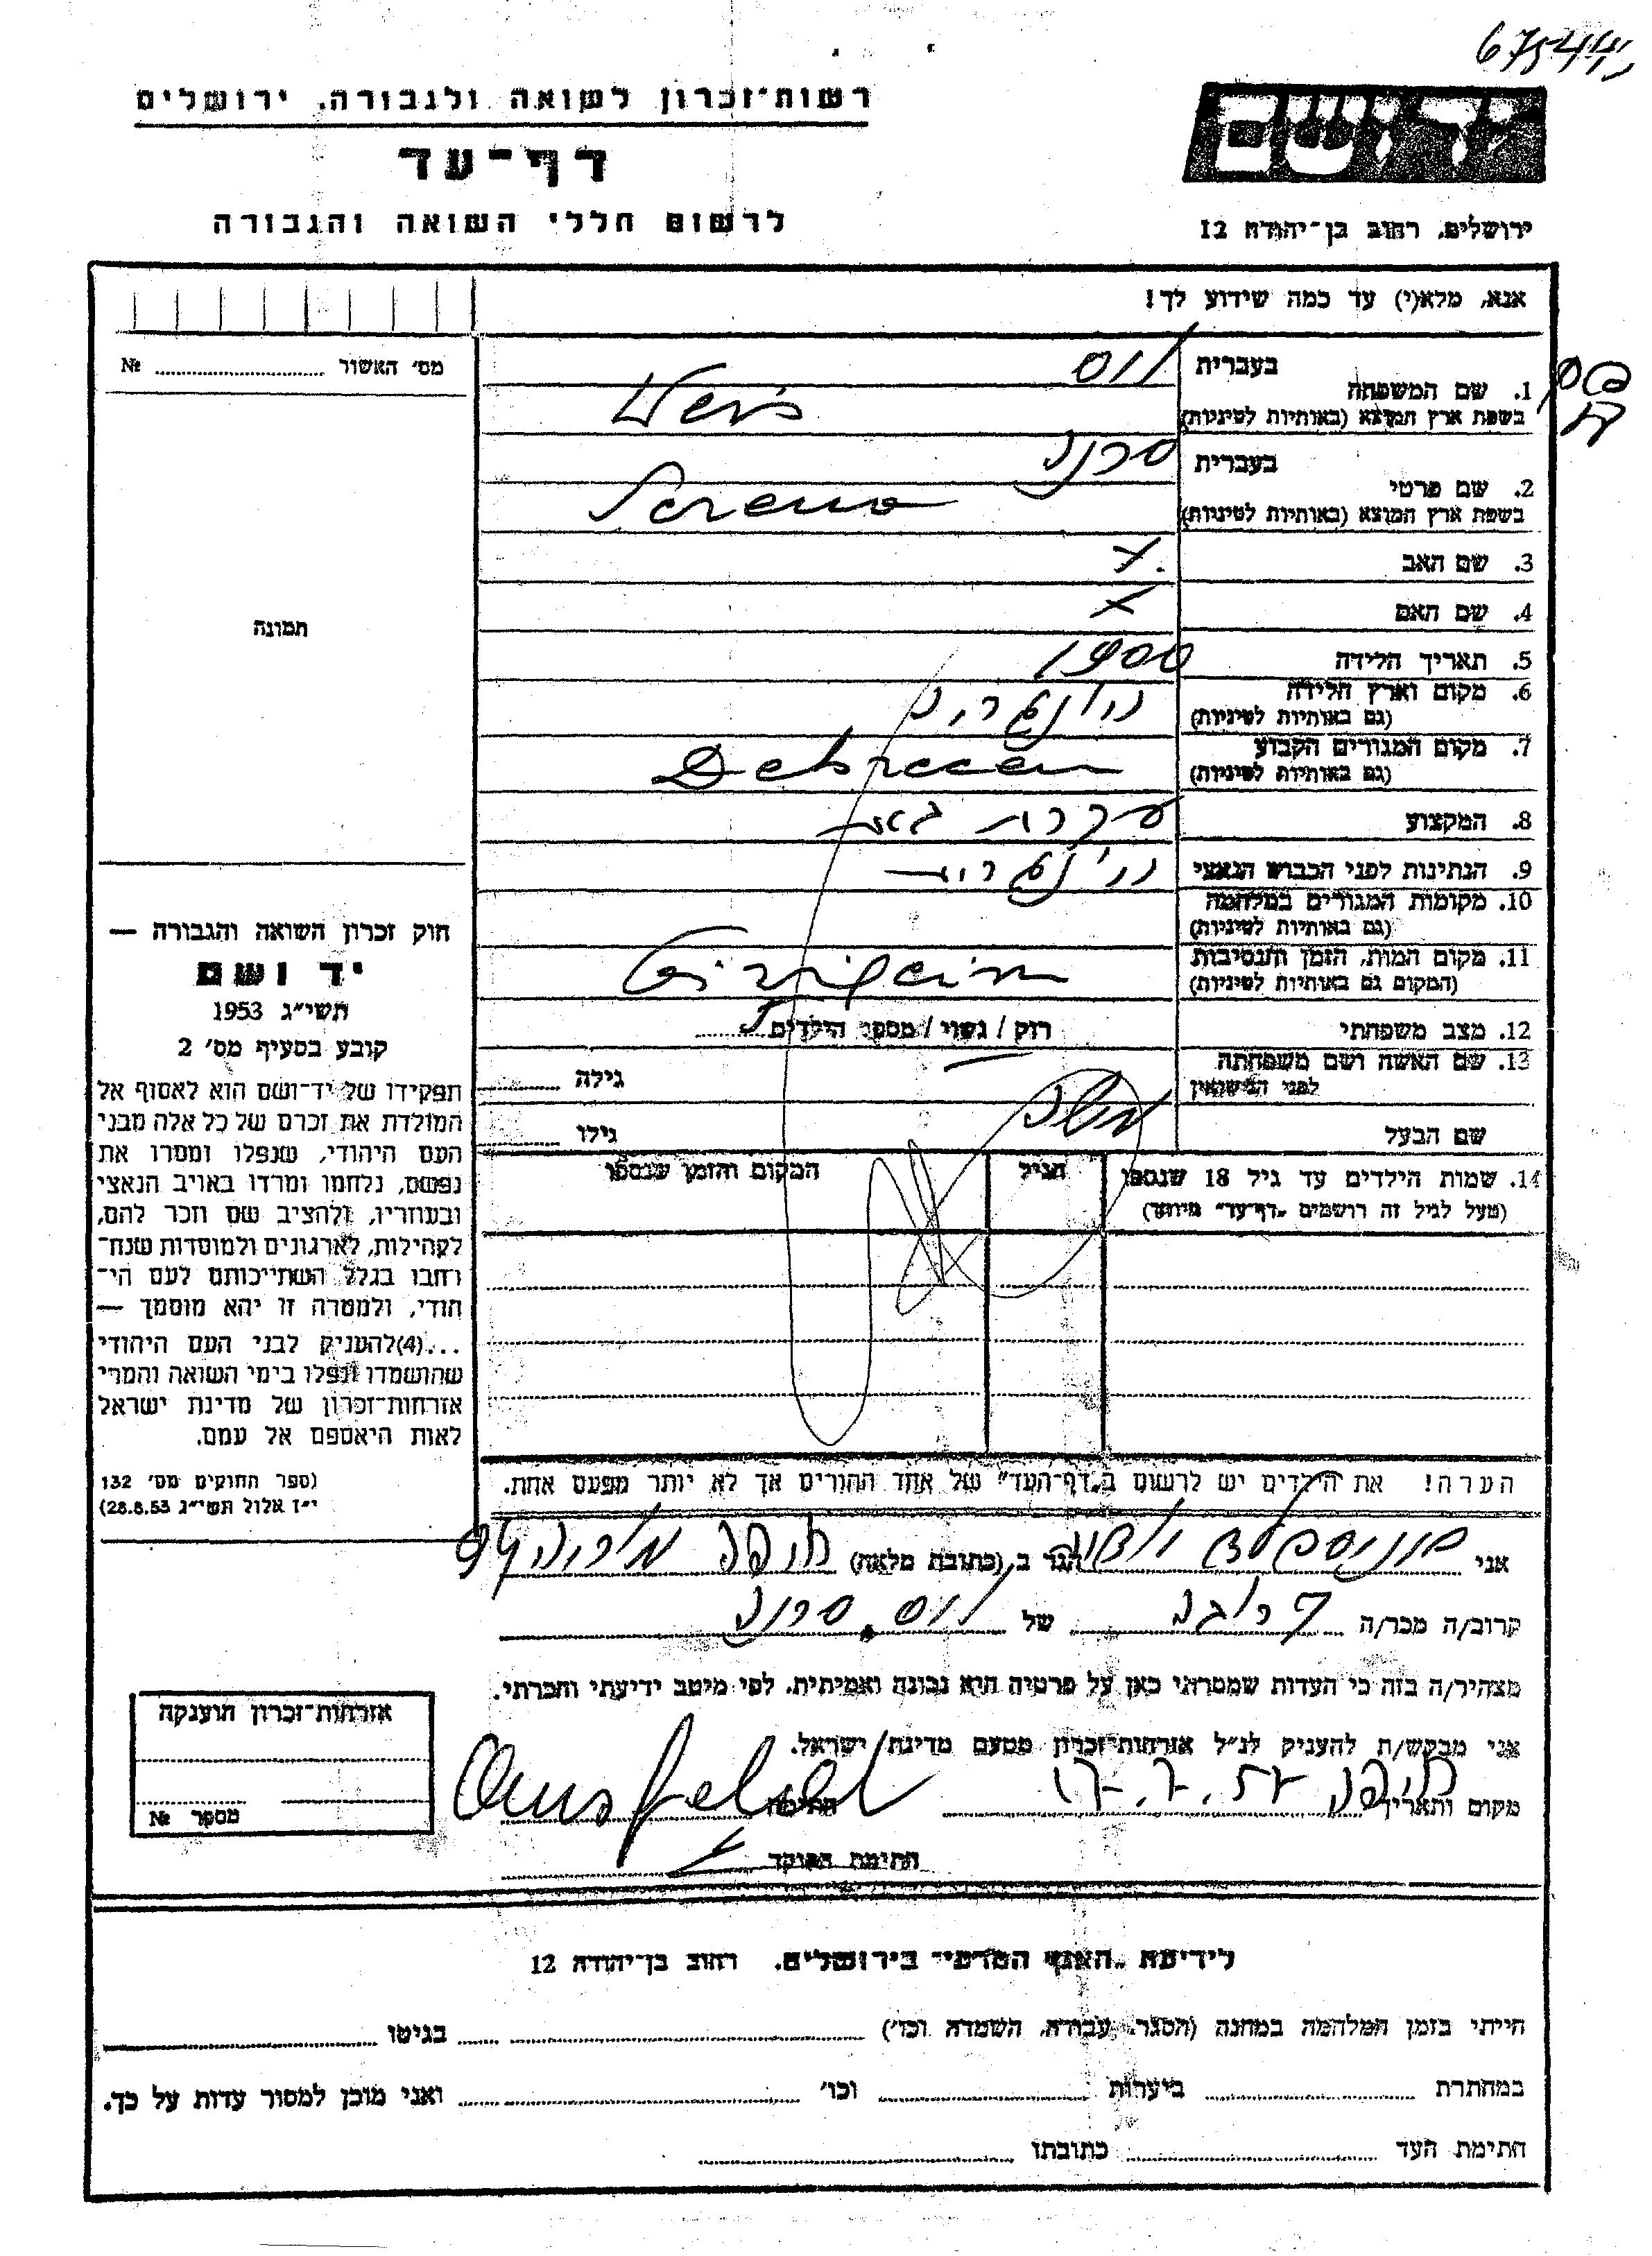 רשות־זכרון לשואה ולגבורה, ירושלים
דף־עד
לרשום חללי השואה והגבורה
יד ושם
ירושלים, רחוב בן־יהודה 12
אנא, מלא(י) עד כמה שידוע לך!
מס׳ האשור № 
בעברית ווס
1. שם המשפחה
בשפת ארץ המוצא (באותיות לטיניות) Weis
בעברית סרנה
2. שם פרטי
בשפת ארץ המוצא (באותיות לטיניות) Serena
3. שם האב
4. שם האם
5. תאריך הלידה 1900
6. מקום וארץ הלידה
(גם באותיות לטיניות) הונגריה
7. מקום המגורים הקבוע
(גם באותיות לטיניות) Debrecen
8. המקצוע עקרת בית
9. הנתינות לפני הכבוש הנאצי הונגרית
10. מקומות המגורים במלחמה
(גם באותיות לטיניות)
11. מקום המות, הזמן והנסיבות
(המקום גם באותיות לטיניות)
12. מצב משפחתי רווק / נשוי / מספר הילדים 5
13. שם האשה ושם משפחתה
לפני הנישואין גילה
שם הבעל גילו
14. שמות הילדים עד גיל 18 שנספו
(מעל לגיל זה רושמים „דף־עד״ מיוחד)
הגיל
המקום והזמן שנספו
הערה! את הילדים יש לרשום ב„דף־העד״ של אחד ההורים אך לא יותר מפעם אחת.
תמונה
חוק זכרון השואה והגבורה —
יד ושם
תשי״ג 1953
קובע בסעיף מס׳ 2
תפקידו של יד־ושם הוא לאסוף אל
המולדת את זכרם של כל אלה מבני
העם היהודי, שנפלו ומסרו את
נפשם, נלחמו ומרדו באויב הנאצי
ובעוזריו, ולהציב שם וזכר להם,
לקהילות, לארגונים ולמוסדות שנח־
רחבו בגלל השתייכותם לעם הי־
הודי, ולמטרה זו יהא מוסמך —
...(4)להעניק לבני העם היהודי
שהושמדו ונפלו בימי השואה והמרי
אזרחות־זכרון של מדינת ישראל
לאות היאספם אל עמם.
(ספר החוקים מס׳ 132
י״ז אלול תשי״ג 28.8.53)
אני הגר ב (כתובת מלאה) חיפה
קרוב/ה מכר/ה קרובה של ווס סרנה
מצהיר/ה בזה כי העדות שמסרתי כאן על פרטיה היא נכונה ואמיתית, לפי מיטב ידיעתי והכרתי.
אני מבקש/ת להעניק לנ״ל אזרחות־זכרון מטעם מדינת ישראל.
מקום ותאריך חיפה 17.7.57 חתימה
חתימת הפוקד
אזרחות־זכרון הוענקה
מספר №
לידיעת „האגף המדעי״ בירושלים, רחוב בן־יהודה 12
הייתי בזמן המלחמה במחנה (הסגר, עבודה, השמדה וכו׳) בגיטו
במחתרת ביערות וכו׳ ואני מוכן למסור עדות על כך.
חתימת העד כתובתו